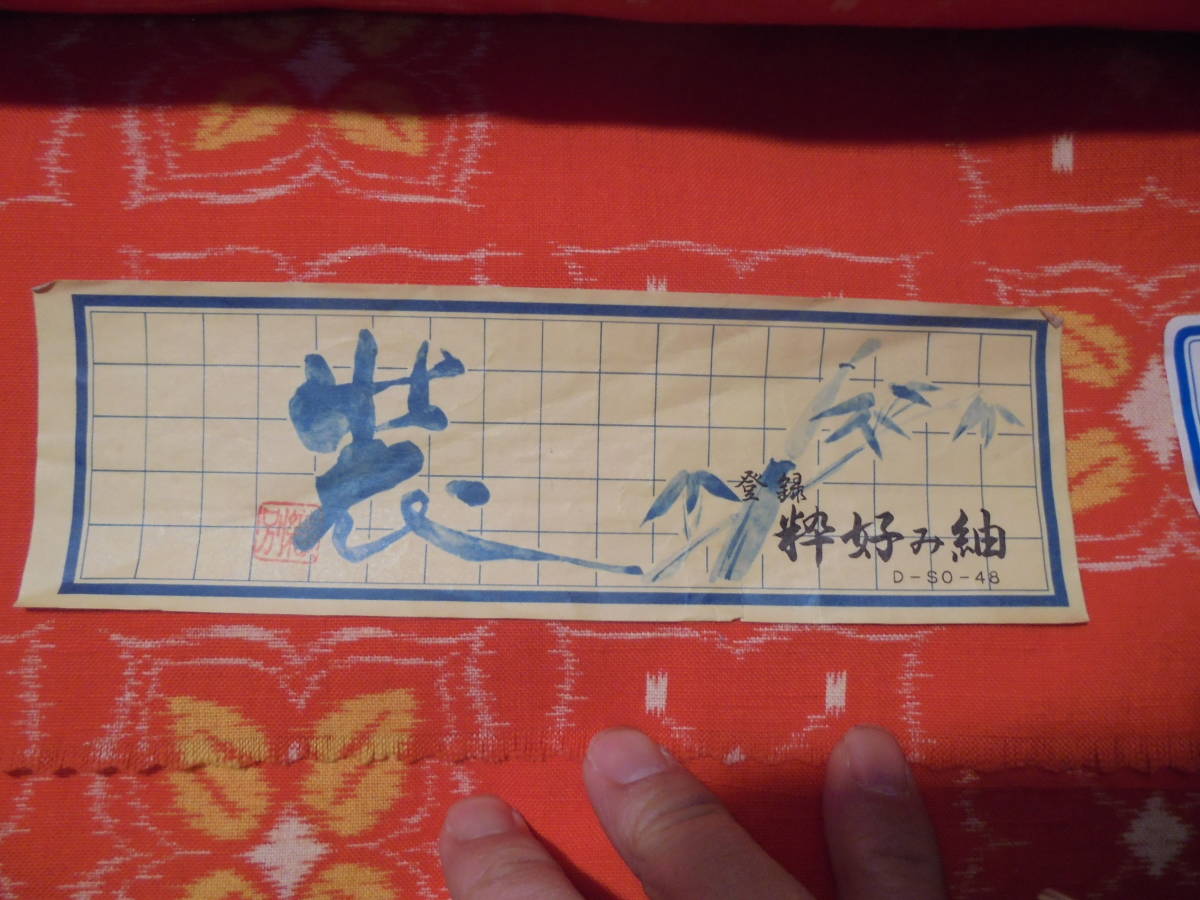 装
登録
粋好み紬
D-SO-48